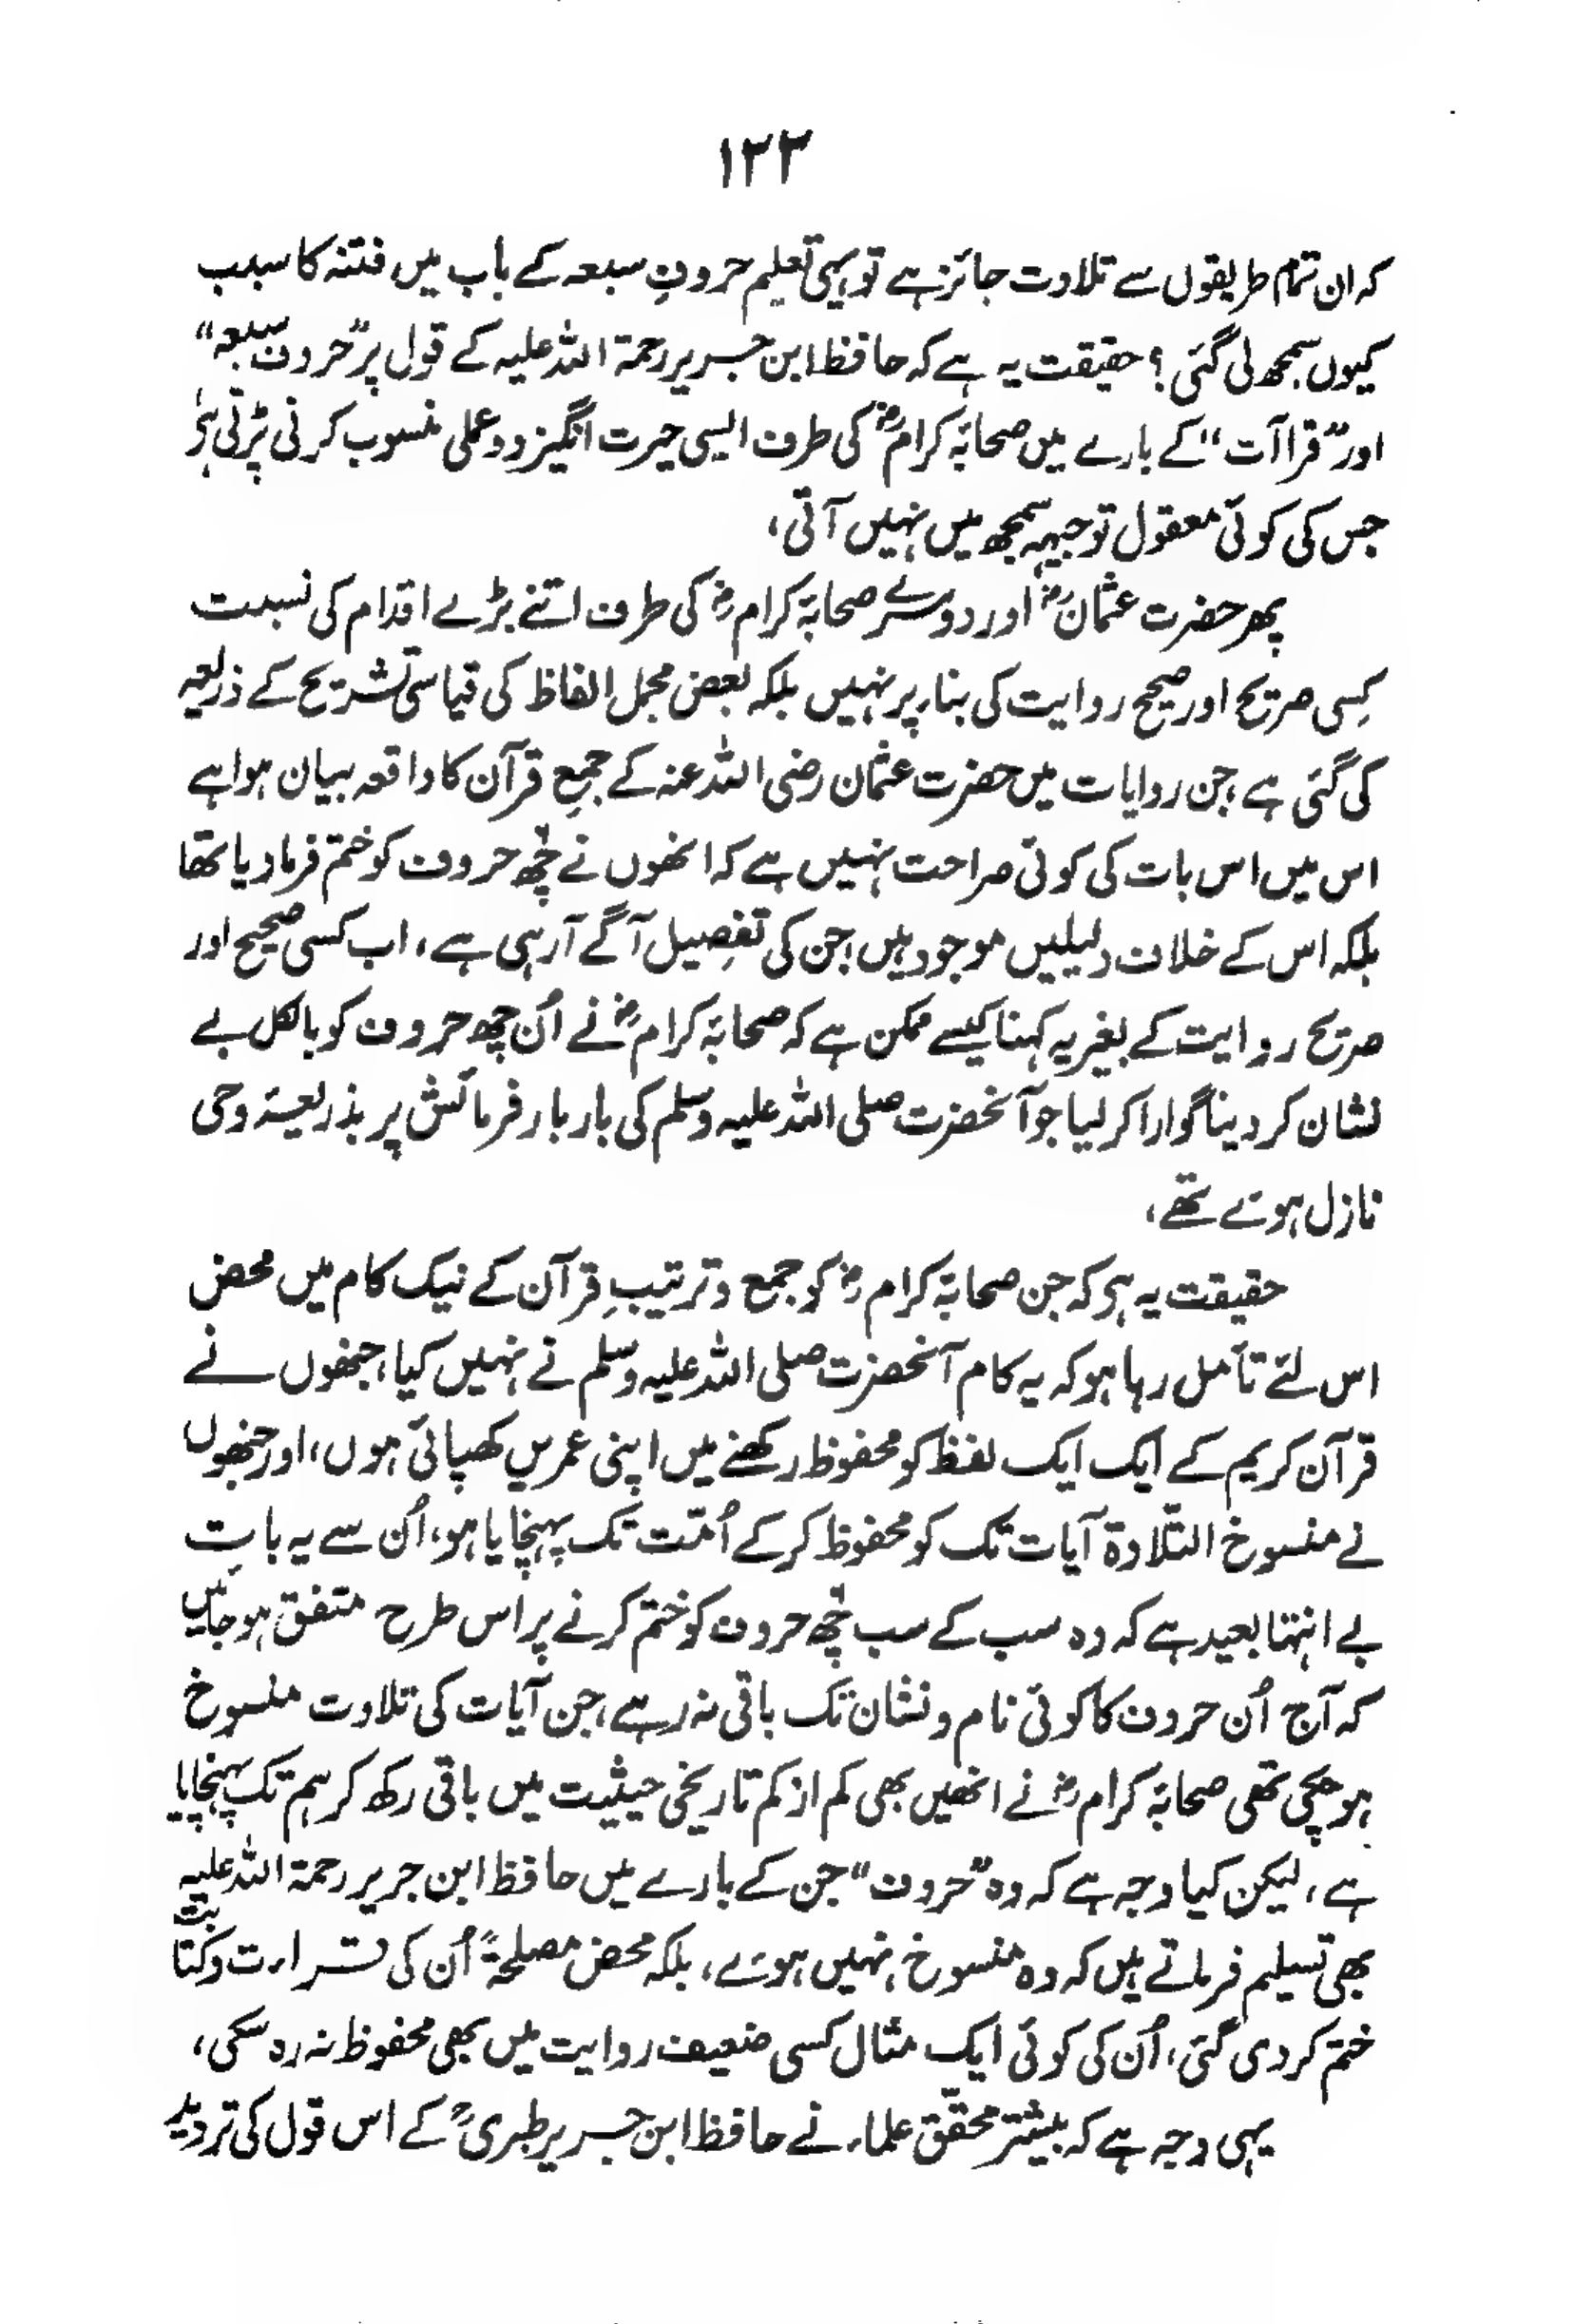 ۱۲۳
کہ ان تمام طریقوں سے تلاوت جائز ہے تو یہی تعلیم حروفِ سبعہ کے باب میں فتنہ کا سبب
کیوں سمجھ لی گئی ؟ حقیقت یہ ہے کہ حافظ ابن جریر رحمۃ اللہ علیہ کے قول پر ”حروف سبعہ“
اور ”قراآت“ کے بارے میں صحابۂ کرامؓ کی طرف ایسی حیرت انگیز دو عملی منسوب کرنی پڑتی ہی
جس کی کوئی معقول توجیہہ سمجھ میں نہیں آتی،
پھر حضرت عثمانؓ اور دوسرے صحابۂ کرامؓ کی طرف اتنے بڑے اقدام کی نسبت
کِسی صریح اور صحیح روایت کی بناء پر نہیں بلکہ بعض مجمل الفاظ کی قیاسی تشریح کے ذریعہ
کی گئی ہے، جن روایات میں حضرت عثمان رضی اللہ عنہ کے جمعِ قرآن کا واقعہ بیان ہوا ہے
اس میں اس بات کی کوئی صراحت نہیں ہے کہ انھوں نے چھ حروف کو ختم فرمادیا تھا
بلکہ اس کے خلاف دلیلیں موجود ہیں، جن کی تفصِیل آگے آرہی ہے، اب کسی صحیح اور
صریح روایت کے بغیر یہ کہنا کیسے ممکن ہے کہ صحابۂ کرامؓ نے اُن چھ حروف کو بالکل بے
نشان کر دینا گوارا کر لیا جو آنحضرت صلی اللہ علیہ وسلم کی بار بار فرمائش پر بذریعۂ وحی
نازل ہوئے تھے،
حقیقت یہ ہی کہ جن صحابۂ کرامؓ کو جمع و ترتیبِ قرآن کے نیک کام میں محض
اس لئے تأمل رہا ہو کہ یہ کام آنحضرت صلی اللہ علیہ وسلم نے نہیں کیا، جنھوں نے
قرآن کریم کے ایک ایک لفظ کو محفوظ رکھنے میں اپنی عمریں کھپائی ہوں، اور جنھوں
نے منسوخ التّلاوۃ آیات تک کو محفوظ کر کے اُمّت تک پہنچایا ہو، اُن سے یہ بات
بے انتہا بعید ہے کہ وہ سب کے سب چھ حروف کو ختم کرنے پر اس طرح متفق ہو جائیں
کہ آج اُن حروف کا کوئی نام و نشان تک باقی نہ رہے، جن آیات کی تلاوت منسوخ
ہو چکی تھی صحابۂ کرامؓ نے انھیں بھی کم از کم تاریخی حیثیت میں باقی رکھ کر ہم تک پہنچایا
ہے، لیکن کیا وجہ ہے کہ وہ ”حروف“ جن کے بارے میں حافظ ابن جریر رحمۃ اللہ علیہ
بھی تسلیم فرماتے ہیں کہ وہ منسوخ نہیں ہوئے، بلکہ محض مصلحۃً اُن کی قراءت و کتابت
ختم کر دی گئی، اُن کی کوئی ایک مثال کسی ضعیف روایت میں بھی محفوظ نہ رہ سکی،
یہی وجہ ہے کہ بیشتر محقّق علماء نے حافظ ابن جریر طبریؒ کے اس قول کی تردید